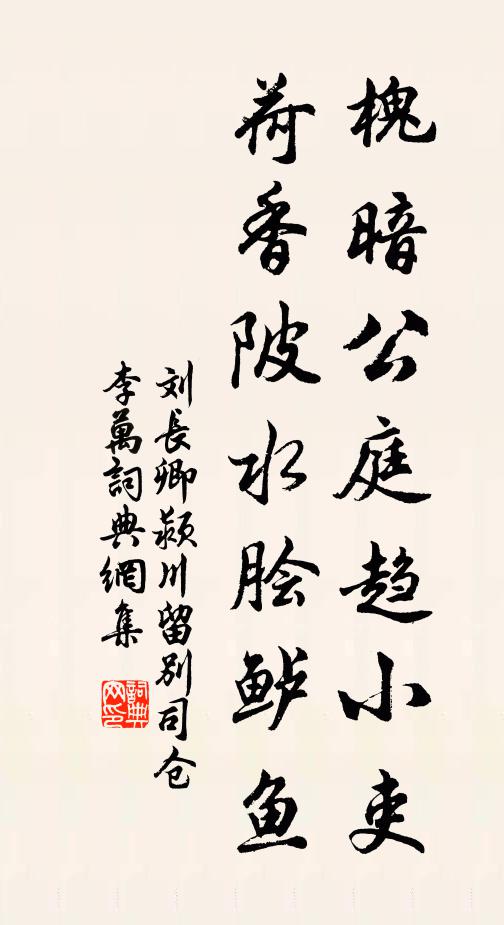 槐暗公庭趋小吏
荷香陂水脍鲈鱼
刘長卿颍川留别司仓
李萬詞典網集
詞典网印